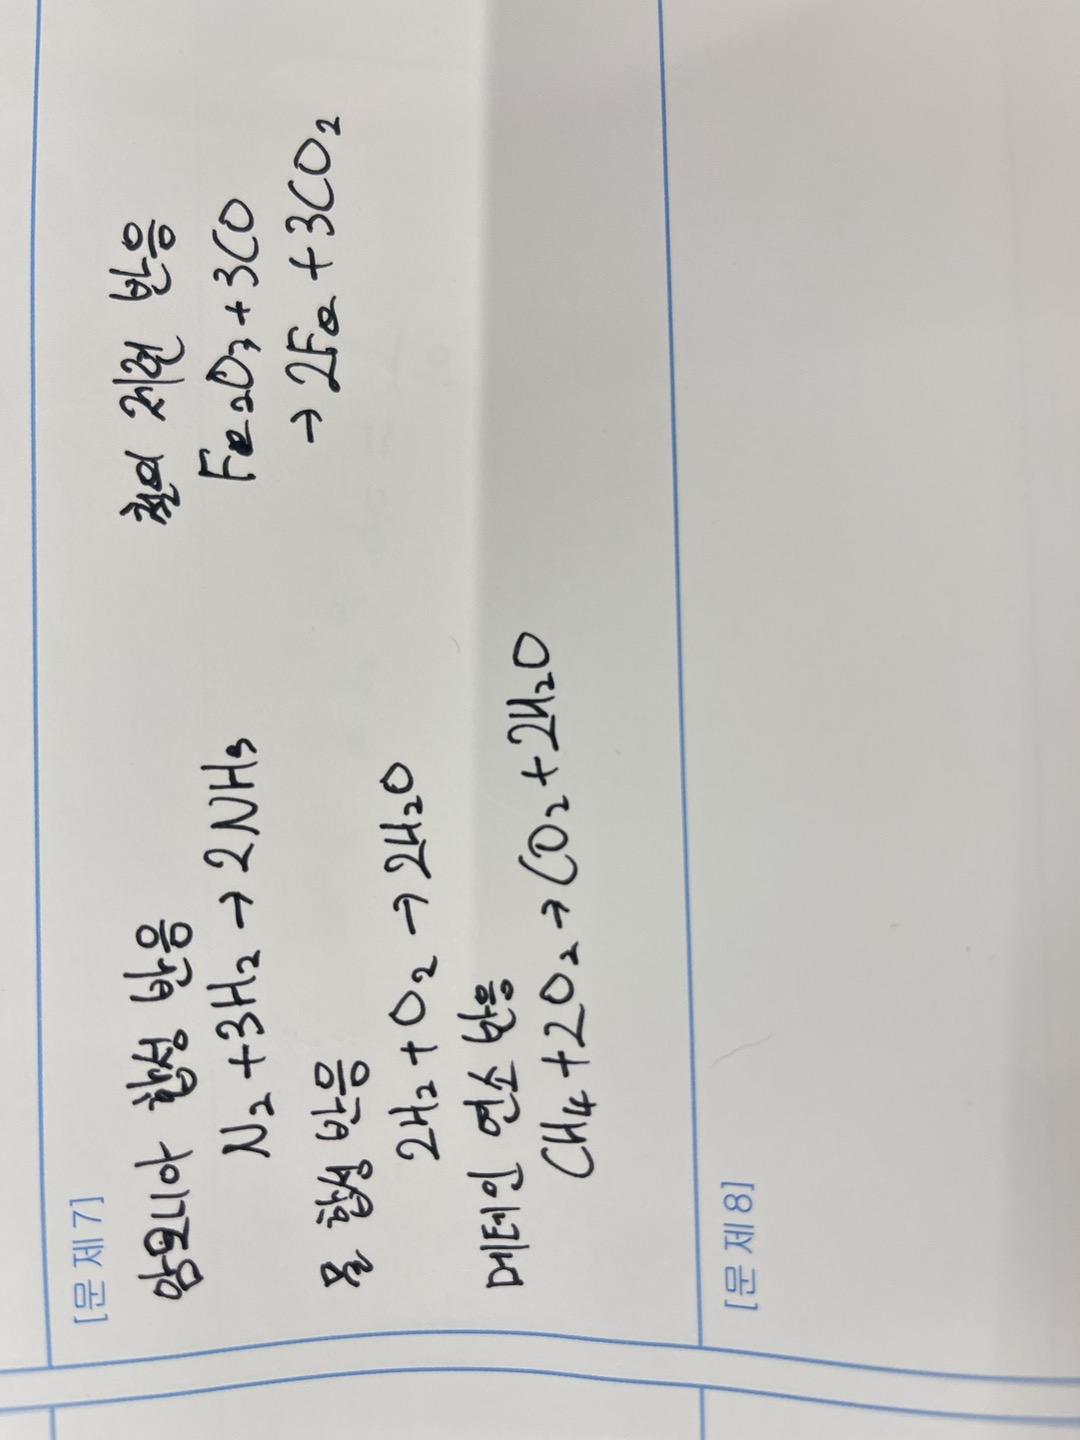 [문제 7]
암모니아 합성 반응
N₂ + 3H₂ → 2NH₃
물 합성 반응
2H₂ + O₂ → 2H₂O
메테인 연소 반응
CH₄ + 2O₂ → CO₂ + 2H₂O
철의 제련 반응
Fe₂O₃ + 3CO
→ 2Fe + 3CO₂
[문제 8]